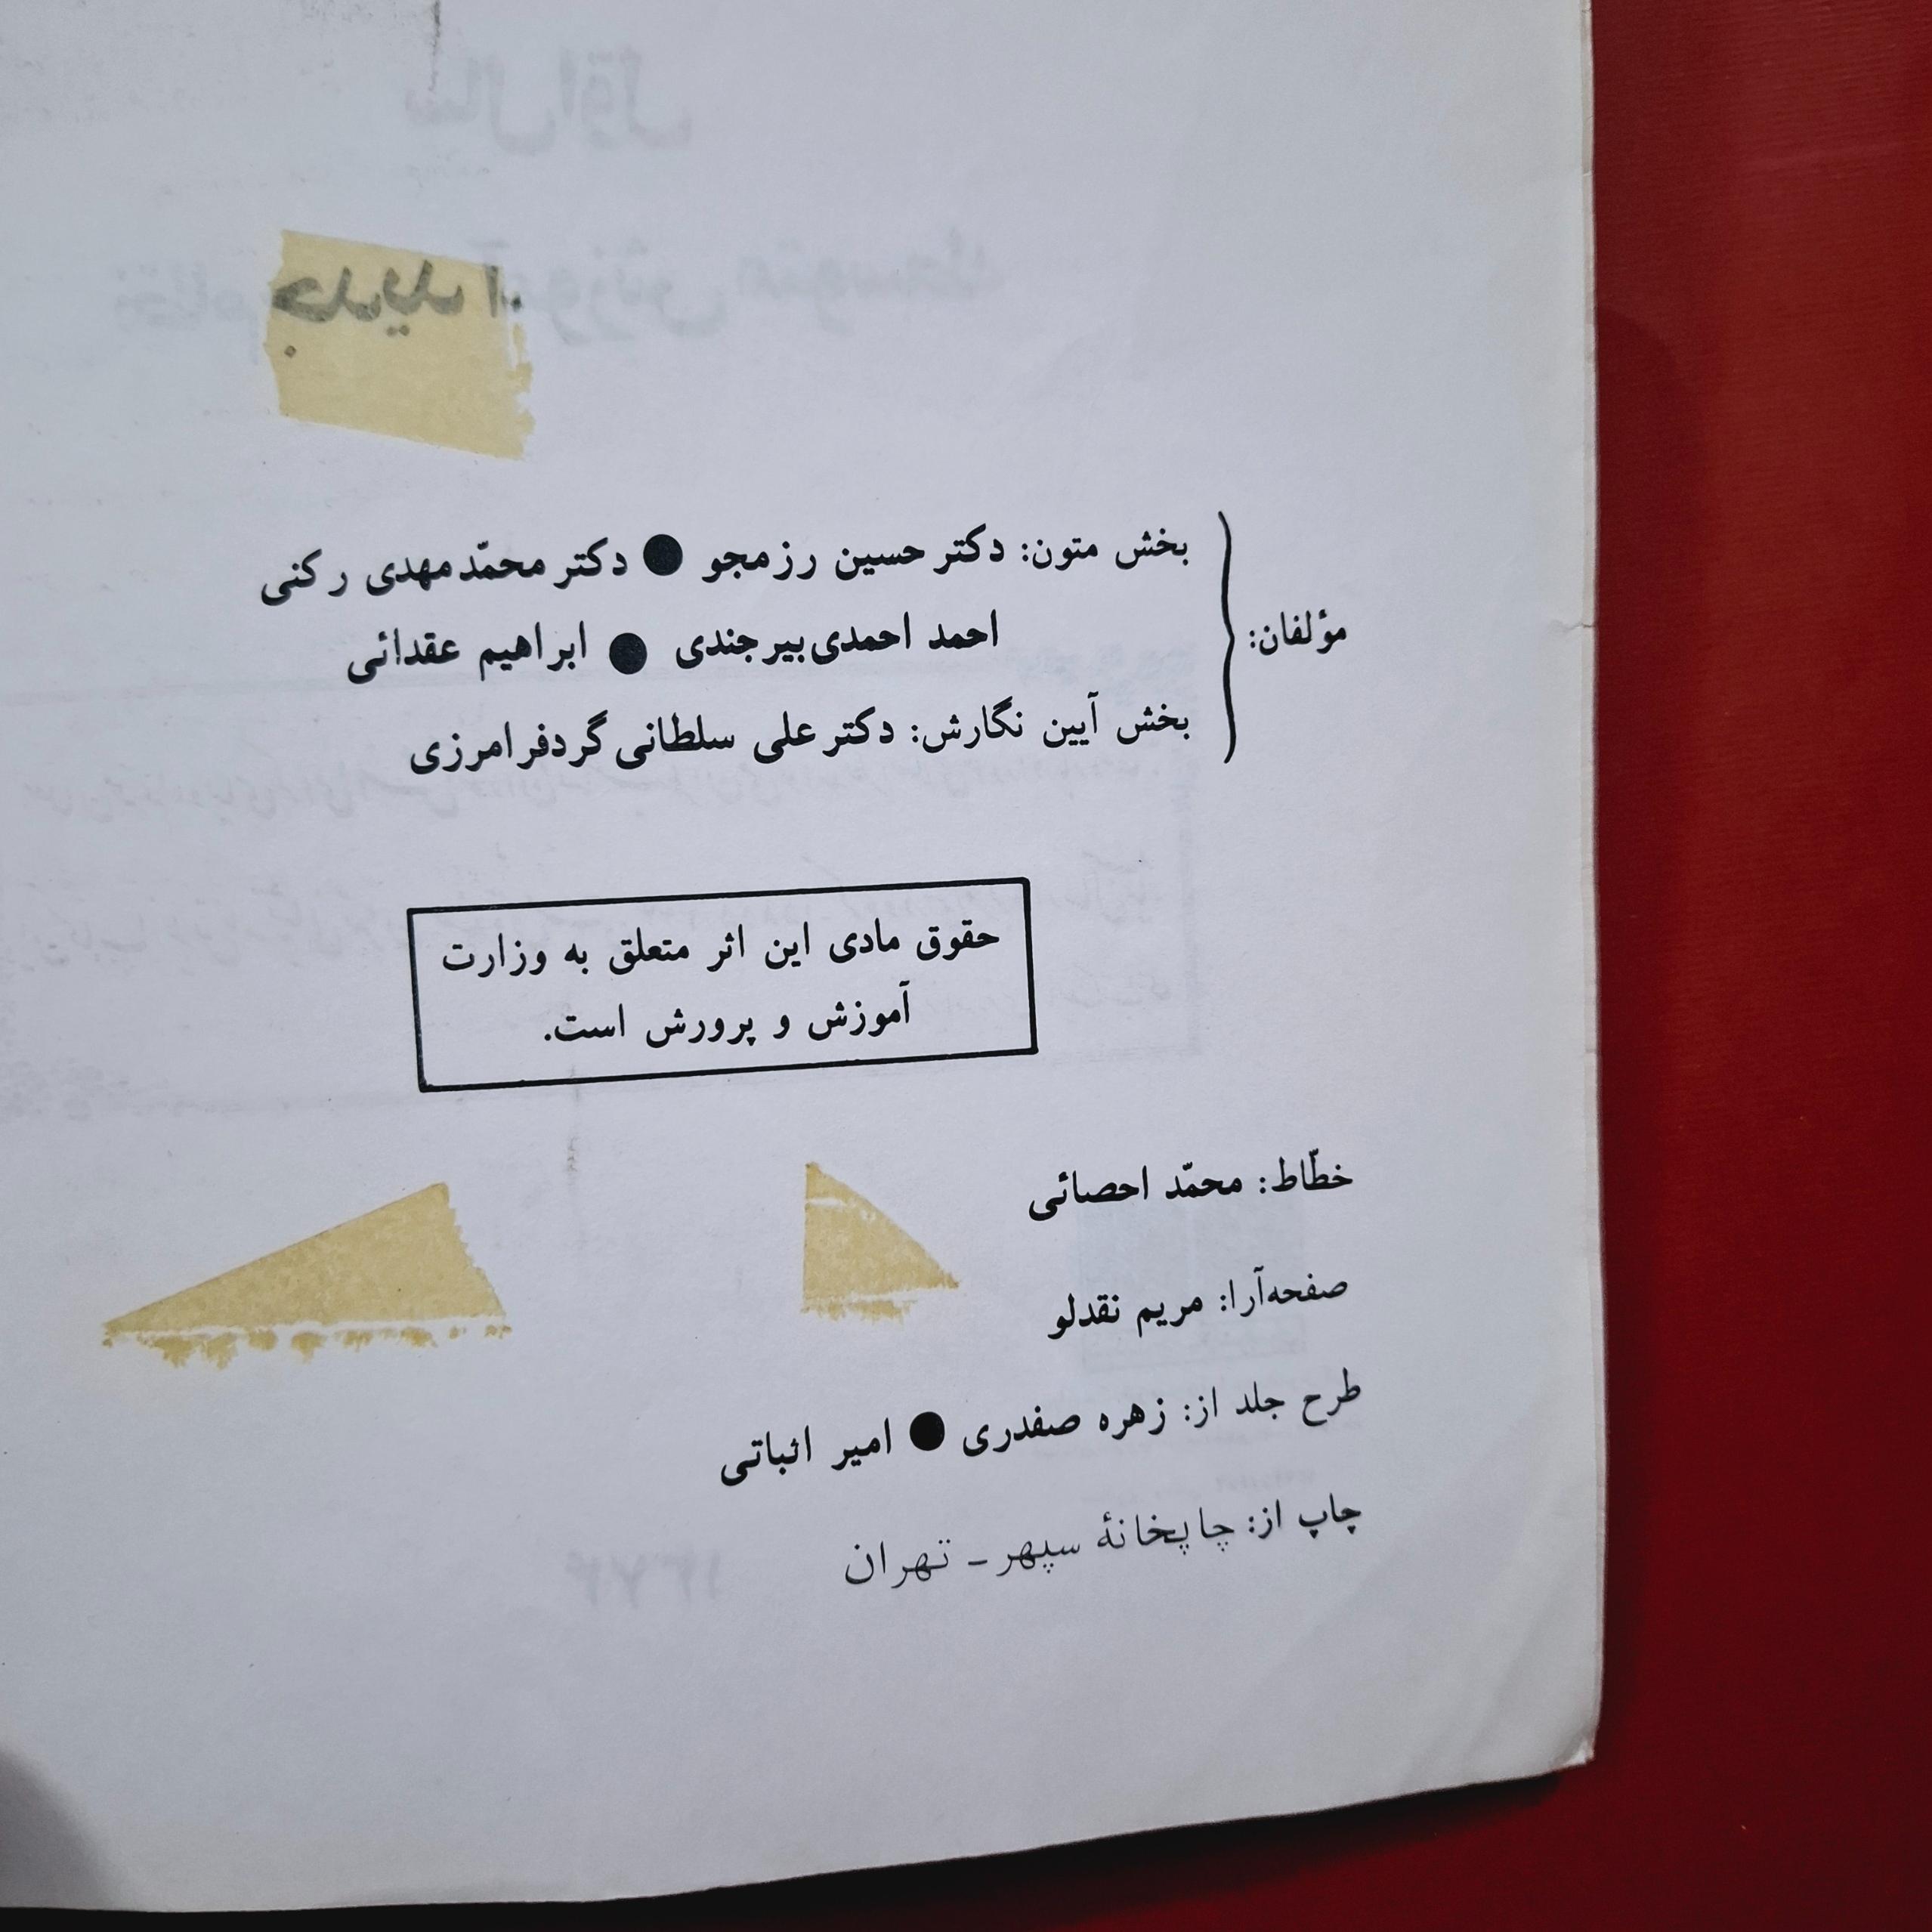 مؤلفان:
بخش متون: دکتر حسین رزمجو ● دکتر محمّدمهدی رکنی
احمد احمدی‌بیرجندی ● ابراهیم عقدائی
بخش آیین نگارش: دکتر علی سلطانی گردفرامرزی
حقوق مادی این اثر متعلق به وزارت
آموزش و پرورش است.
خطّاط: محمّد احصائی
صفحه‌آرا: مریم نقدلو
طرح جلد از: زهره صفدری ● امیر اثباتی
چاپ از: چاپخانهٔ سپهر ـ تهران